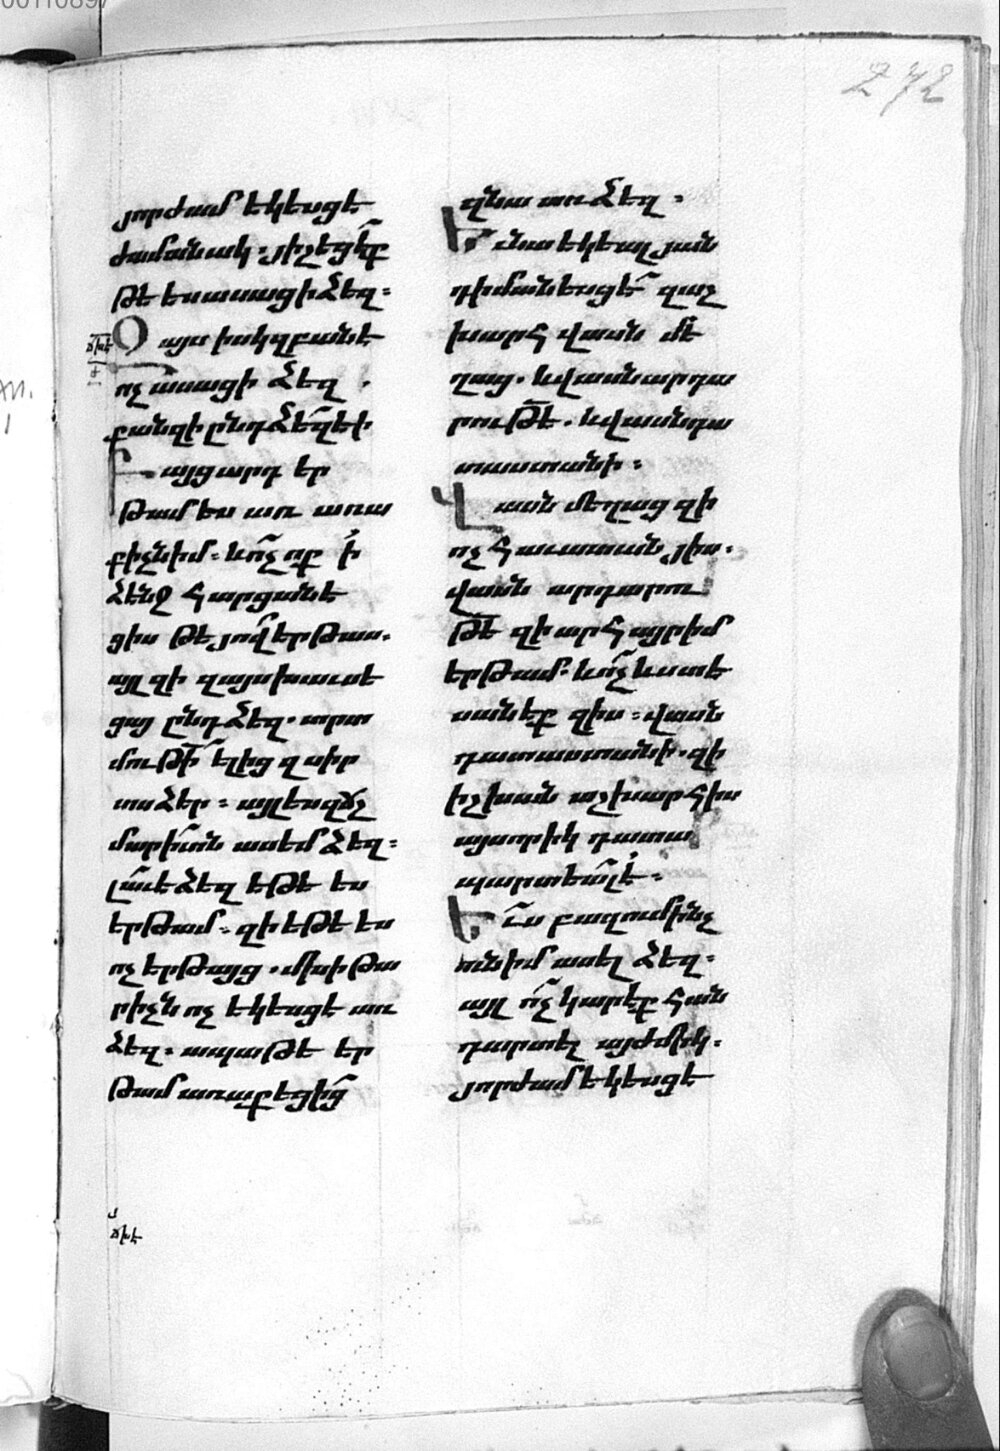 272
յորժամ եկեսցէ
ժամանակ. յիշեցէք
թէ ես ասացի ձեզ:
Զայս իսկզբանէ
ոչ ասացի ձեզ.
քանզի ընդ ձեզ էի
Բայց արդ եր
թամ ես առ առա
քիչն իմ. և ոչ ոք ի
ձէնջ հարցանե
ցիս թէ յով երթաս.
այլ զի զայս խաւսե
ցայ ընդ ձեզ. տրտ
մութի ելից զսիր
տս ձեր. այլ ես զճշ
մարիտն ասեմ ձեզ:
լաւ է ձեզ եթէ ես
երթամ. զի եթէ ես
ոչ երթայց. մխիթա
րիչն ոչ եկեսցէ առ
ձեզ. ապա թէ եր
թամ առաքեցից
ճխէ
զնա առ ձեզ.
Եւ նա եկեալ յան
դիմանեսցէ զաշ
խարհ վասն մե
ղաց. և վասն արդա
րութե. և վասն դա
տաստանի:
Վասն մեղաց զի
ոչ հաւատան յիս.
վասն արդարու
թե զի առ հայր իմ
երթամ. և ոչ ևս տե
սանէք զիս. վասն
դատաստանի. զի
իշխան աշխարհիս
այսորիկ դատա
պարտեալ է.
Եւս բազում ինչ
ունիմ ասել ձեզ.
այլ ոչ կարէք հան
դարտել այժմիկ.
յորժամ եկեսցէ